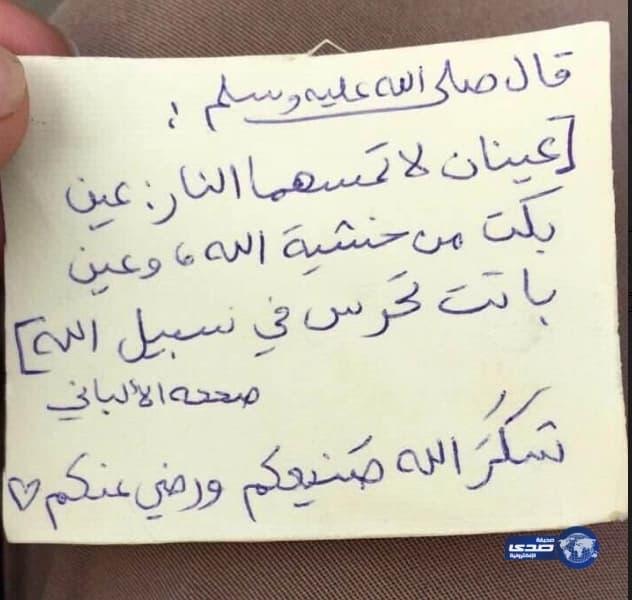 قال صلى الله عليه وسلم :
[عينان لا تمسهما النار: عين
بكت من خشية الله، وعين
باتت تحرس في سبيل الله]
صححه الألباني
شكَرَ الله صَنيعكم ورضي عنكم ♡
صحيفة
صدى
الإلكترونية